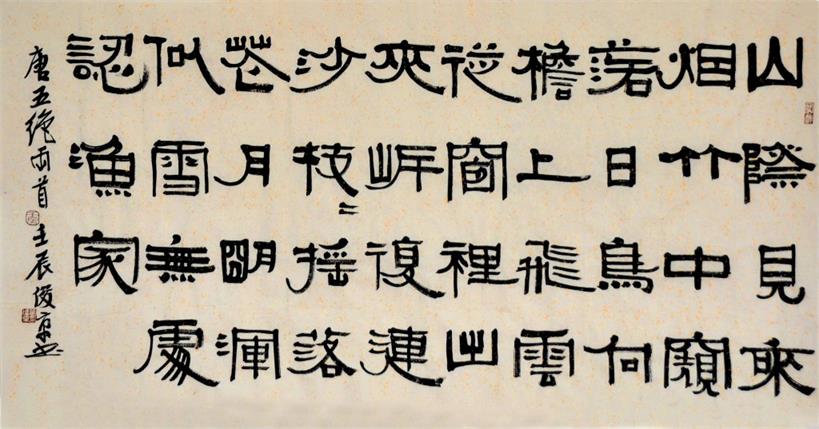 山際見來
烟竹中窺
落日鳥向
檐上飛雲
從窗裡出
夾岸復連
沙枝〻搖落
花月明渾
似雪無處
認漁家
唐五絕兩首 壬辰俊京書